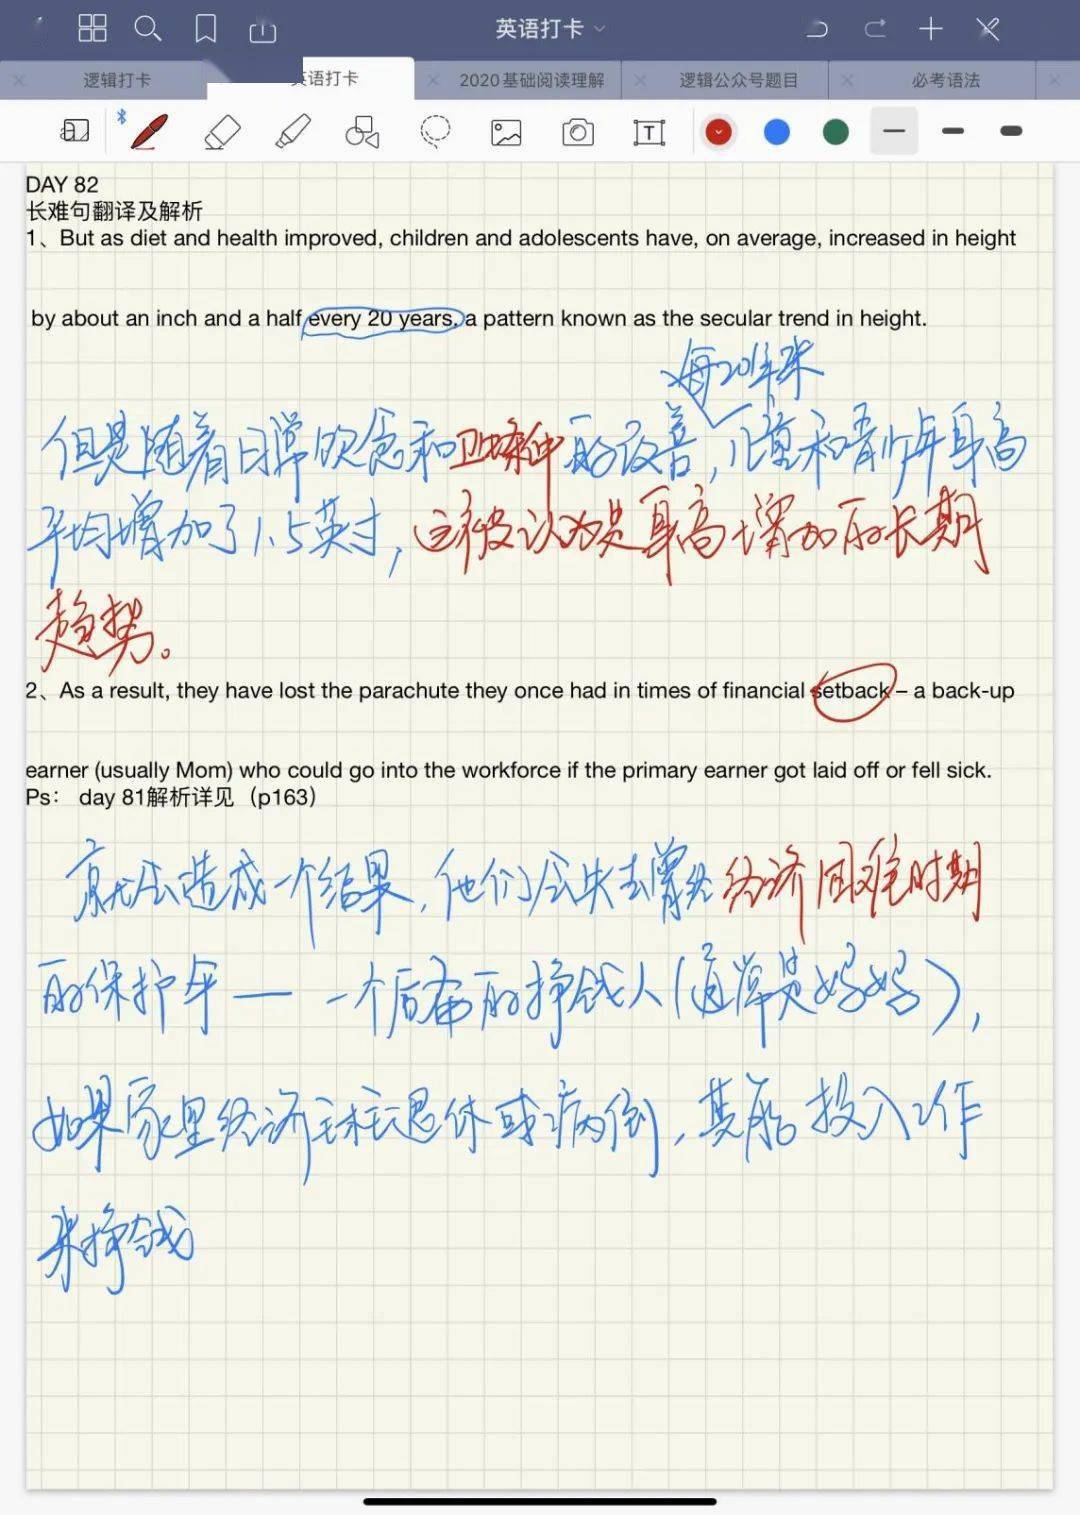 英语打卡
逻辑打卡
英语打卡
2020基础阅读理解
逻辑公众号题目
必考语法
T
DAY 82
长难句翻译及解析
1、But as diet and health improved, children and adolescents have, on average, increased in height
by about an inch and a half every 20 years, a pattern known as the secular trend in height.
每20年来
但是随着日常饮食和卫生条件的改善,儿童和青少年身高
平均增加了1.5英寸,这被认为是身高增加的长期
趋势。
2、As a result, they have lost the parachute they once had in times of financial setback – a back-up
earner (usually Mom) who could go into the workforce if the primary earner got laid off or fell sick.
Ps： day 81解析详见（p163）
就会造成一个结果,他们会失去曾经经济困难时期
的保护伞 — 一个后备的挣钱人(通常是妈妈),
如果家里经济主力退休或病倒,其能投入工作
来挣钱